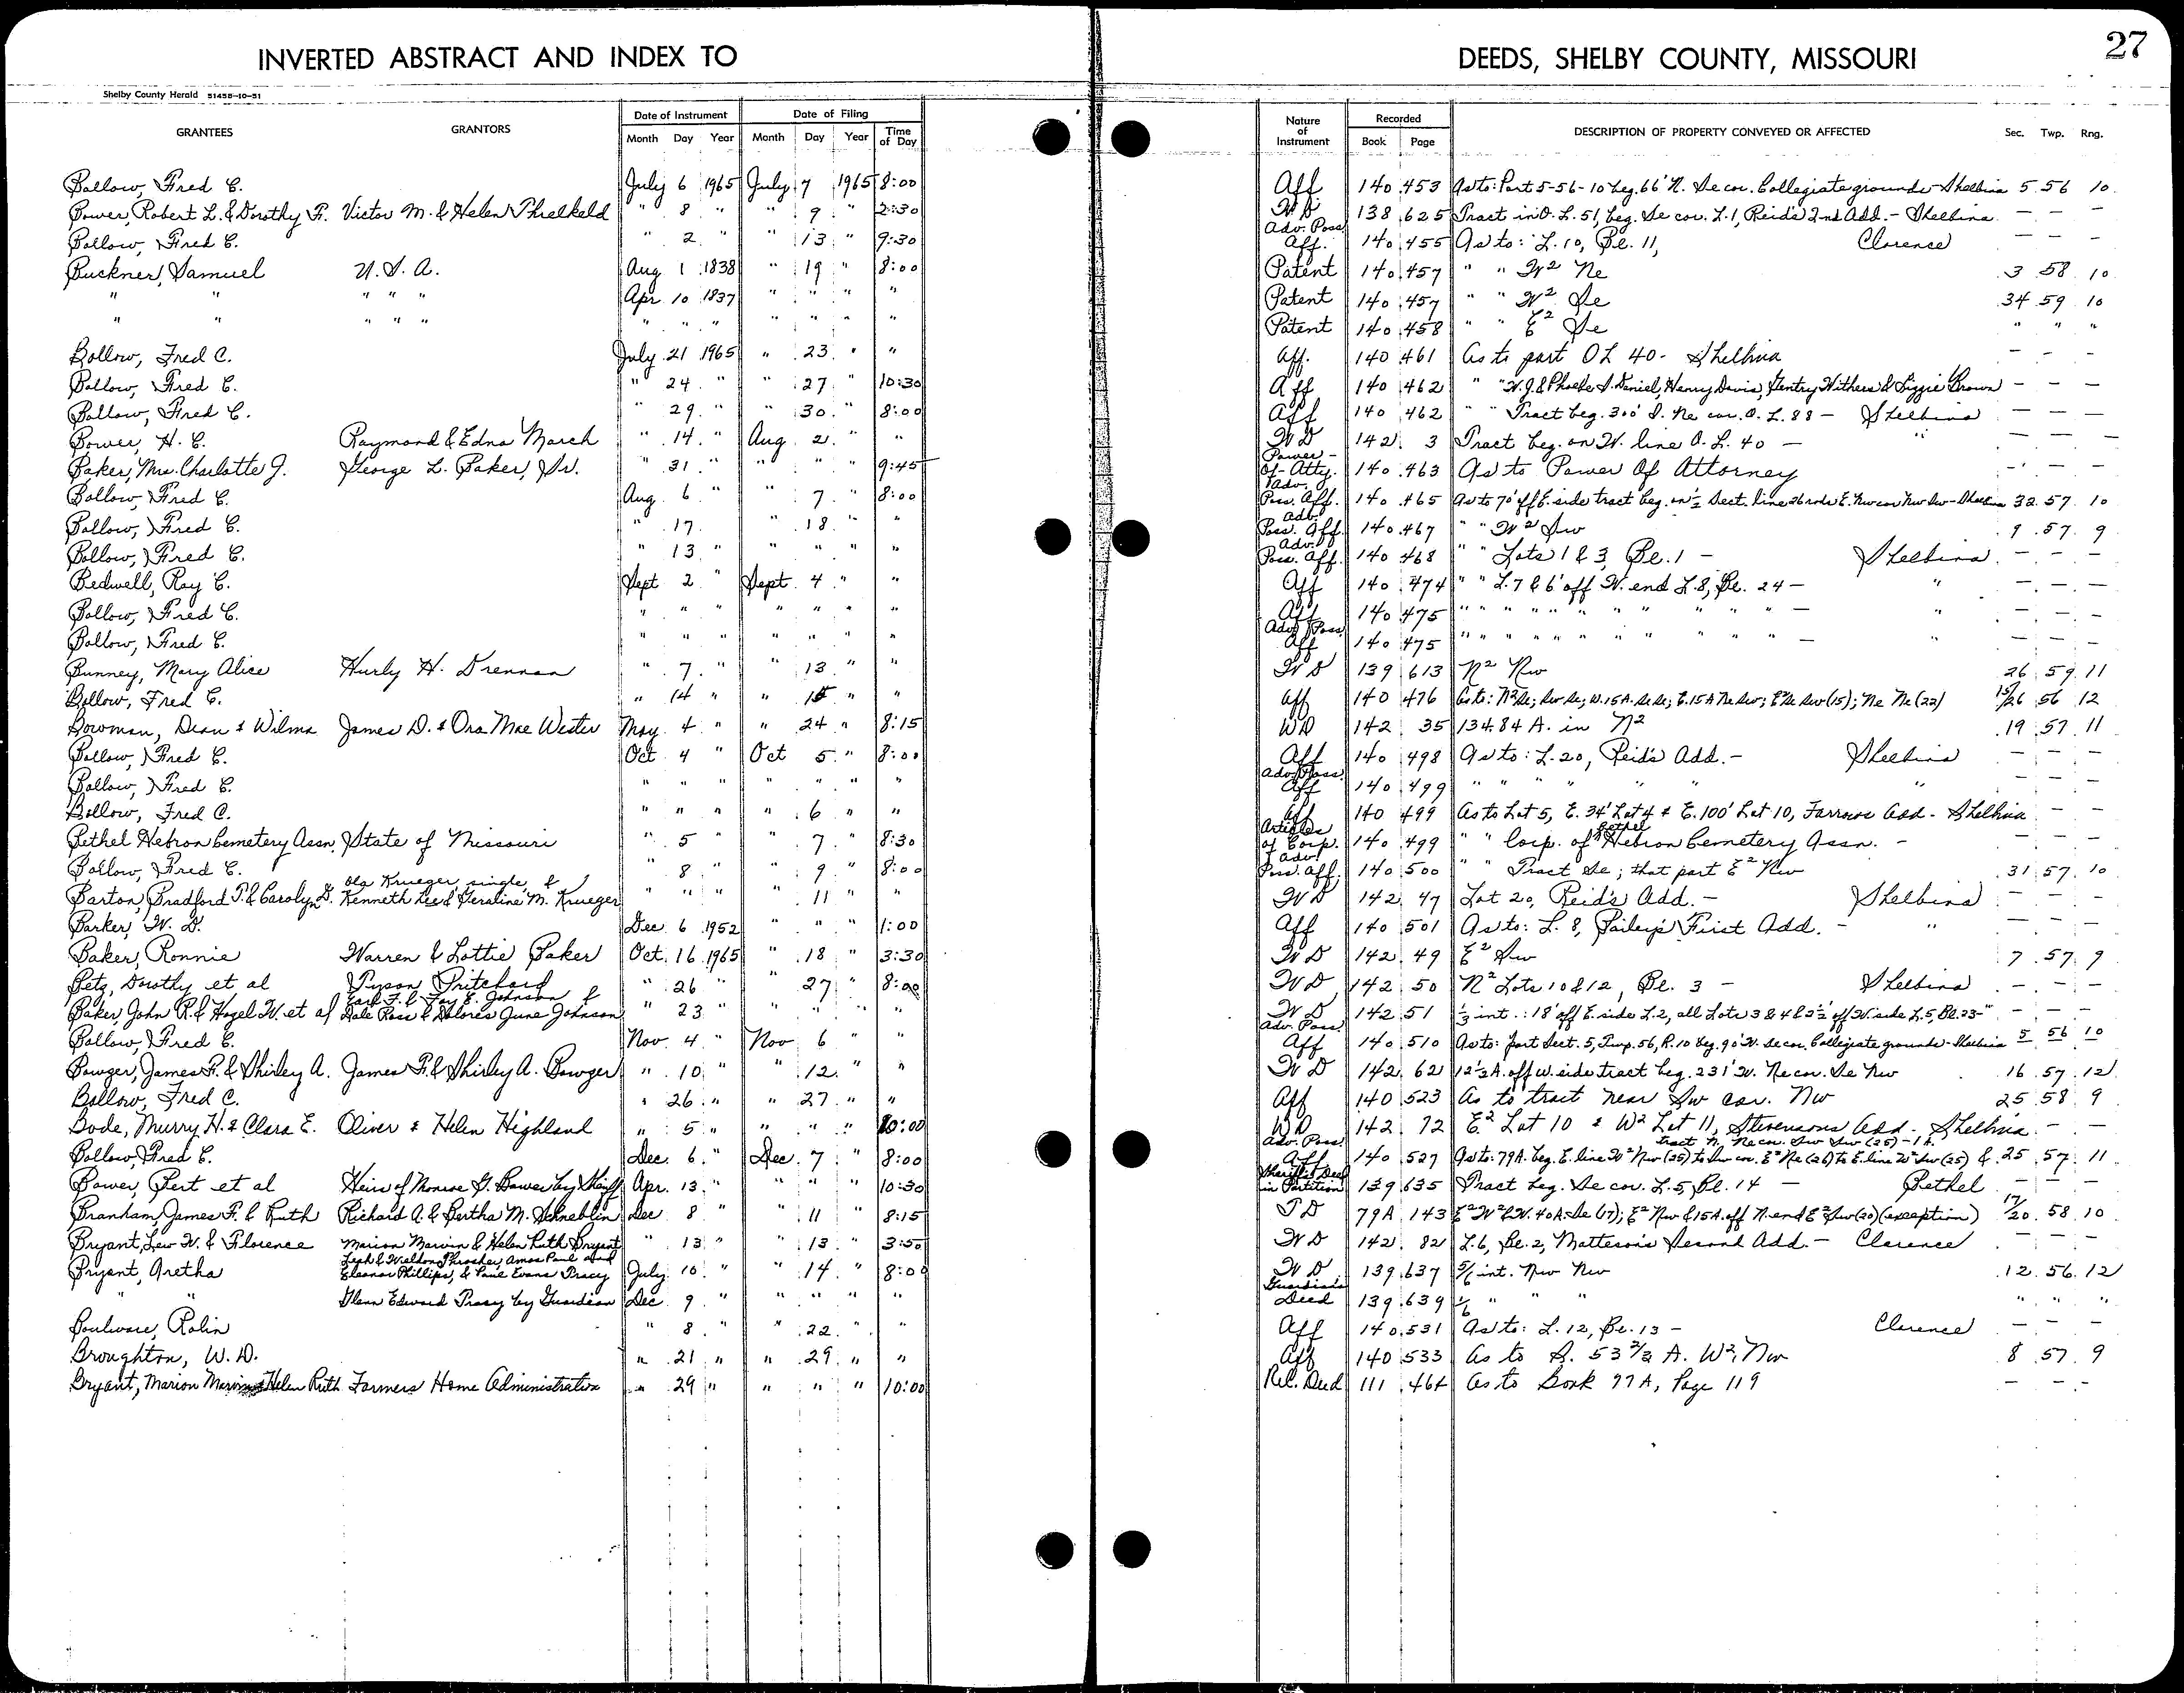 INVERTED ABSTRACT AND INDEX TO DEEDS, SHELBY COUNTY, MISSOURI 27
Shelby County Herald 51455-10-51
GRANTEES GRANTORS Date of Instrument Month Day Year Date of Filing Month Day Year Time of Day Nature of Instrument Recorded Book Page DESCRIPTION OF PROPERTY CONVEYED OR AFFECTED Sec. Twp. Rng.
Bollow, Fred C. July 6 1965 July 7 1965 8:00 Aff 140 453 As to: Part 5-56-10 beg. 66' N. Se cor. Collegiate grounds - Shelbina 5 56 10
Bower, Robert L. & Dorothy F. Victor M. & Helen Threlkeld " 8 " " 9 " 2:30 WD 138 625 Tract in O. L. 51, beg. Se cor. L. 1, Reid's 2nd Add. - Shelbina - - -
Bollow, Fred C. " 2 " " 13 " 9:30 Adv. Poss. Aff. 140 455 As to: L. 10, Bl. 11, Clarence - - -
Buckner, Samuel U. S. A. Aug 1 1838 " 19 " 8:00 Patent 140 457 " " W² Ne 3 58 10
" " " " " Apr 10 1837 " " " " Patent 140 457 " " W² Se 34 59 10
" " " " " " " " " " " " Patent 140 458 " " E² Se " " "
Bollow, Fred C. July 21 1965 " 23 " " Aff. 140 461 As to part OL 40 - Shelbina - - -
Bollow, Fred C. " 24 " " 27 " 10:30 Aff 140 462 " " W. J. & Phoebe S. Daniel, Henry Davis, Gentry Withers & Lizzie Brown - - -
Bollow, Fred C. " 29 " " 30 " 8:00 Aff 140 462 " " Tract beg. 300' S. Ne cor. O. L. 88 - Shelbina - - -
Bower, H. C. Raymond & Edna March " 14 " Aug 2 " " WD 142 3 Tract beg. on W. line O. L. 40 - " - - -
Baker, Mrs. Charlotte J. George L. Baker, Sr. " 31 " " " " 9:45 Power-Of-Atty. 140 463 As to Power Of Attorney - - -
Bollow, Fred C. Aug 6 " " 7 " 8:00 Adv. Poss. Aff. 140 465 As to 70' off E. side tract beg. on ½ Sect. line 26 rods E. Nw cor Nw Sw - Shelbina 32 57 10
Bollow, Fred C. " 17 " 18 " " Adv. Poss. Aff. 140 467 " " W² Sw 9 57 9
Bollow, Fred C. " 13 " " " " " Adv. Poss. Aff. 140 468 " " Lots 1 & 3, Bl. 1 - Shelbina - - -
Bedwell, Ray C. Sept 2 " Sept 4 " " Aff 140 474 " " L. 7 & 6' off W. end L. 8, Bl. 24 - " - - -
Bollow, Fred C. " " " " " " " Aff 140 475 " " " " " " " " " " - " - - -
Bollow, Fred C. " " " " " " " Adv. Poss. Aff 140 475 " " " " " " " " " " - " - - -
Bunney, Mary Alice Hurly H. Drennan " 7 " " 13 " " WD 139 613 N² Nw 26 59 11
Bollow, Fred C. " 14 " " 15 " " Aff 140 476 As to: N² Se; Sw Se; W. 15 A. Se Se; E. 15 A Ne Sw; E² Se Sw (15); Ne Ne (22) 15/26 56 12
Bowman, Dean & Wilma James D. & Ora Mae Wester May 4 " " 24 " 8:15 WD 142 35 134.84 A. in N² 19 57 11
Bollow, Fred C. Oct 4 " Oct 5 " 8:00 Aff 140 498 As to: L. 20, Reid's Add. - Shelbina - - -
Bollow, Fred C. " " " " " " " Adv. Poss. Aff 140 499 " " " " " " - - -
Bollow, Fred C. " " " " 6 " " Aff 140 499 As to Lot 5, E. 34' Lot 4 & E. 100' Lot 10, Farrows Add - Shelbina - - -
Bethel Hebron Cemetery Assn. State of Missouri " 5 " 7 " 8:30 Articles of Corp. 140 499 " " Corp. of Bethel Hebron Cemetery Assn. - - - -
Bollow, Fred C. " 8 " 9 " 8:00 Adv. Poss. Aff. 140 500 " " Tract Se; that part E² Nw 31 57 10
Barton, Bradford T. & Carolyn D. Ola Krueger, single, & Kenneth Lee & Geraline M. Krueger " " " 11 " " WD 142 47 Lot 20, Reid's Add. - Shelbina - - -
Barker, W. D. Dec 6 1952 " " " 1:00 Aff 140 501 As to: L. 8, Bailey's First Add. - " - - -
Baker, Ronnie Warren & Lottie Baker Oct. 16 1965 " 18 " 3:30 WD 142 49 E² Sw 7 57 9
Betz, Dorothy et al Tyson Pritchard " 26 " 27 " 8:00 WD 142 50 N² Lots 10 & 12, Bl. 3 - Shelbina - - -
Baker, John R. & Hazel W. et al Earl F. & Fay E. Johnson & Dale Ross & Delores June Johnson " 23 " " " " WD 142 51 ⅓ int.: 18' off E. side L. 2, all Lots 3 & 4 & 2½' off W. side L. 5, Bl. 23 - " - - -
Bollow, Fred C. Nov. 4 " Nov 6 " " Adv. Poss. Aff 140 510 As to: part Sect. 5, Twp. 56, R. 10 beg. 90' N. Se cor. Collegiate grounds - Shelbina 5 56 10
Bowger, James F. & Shirley A. James F. & Shirley A. Bowger " 10 " " 12 " " WD 142 62 12½ A. off W. side tract beg. 231' W. Ne cor. Se Nw 16 57 12
Bollow, Fred C. " 26 " " 27 " " Aff 140 523 As to tract near Sw cor. Nw 25 58 9
Bode, Murry H. & Clara E. Oliver & Helen Highland " 5 " " " " 10:00 WD 142 72 E² Lot 10 & W² Lot 11, Stevensons Add - Shelbina - -
Bollow, Fred C. Dec. 6 " Dec. 7 " 8:00 Adv. Poss. Aff 140 527 As to: 79 A. beg. E. line W² Nw (25) to Sw cor. E² Ne (26) to E. line W² Sw (25) & tract N. Ne cor. Sw Sw (25) - 1 A. 25 57 11
Bower, Bert et al Heirs of Monroe G. Bower by Sheriff Apr. 13 " " " " 10:30 Sheriff's Deed in Partition 139 635 Tract beg. Se cor. L. 5, Bl. 14 - Bethel - - -
Branham, James F. & Ruth Richard A. & Bertha M. Schneblin Dec 8 " " 11 " 8:15 TD 79A 143 E² W² & W. 40 A. Se (17); E² Nw & 15 A. off N. end E² Sw (20) (exception) 17/20 58 10
Bryant, Lew W. & Florence Marion Marvin & Helen Ruth Bryant " 13 " " 13 " 3:50 WD 142 82 L. 6, Bl. 2, Matteson's Second Add. - Clarence - - -
Bryant, Aretha Leah & Wieldon Thrasher, Amos Paul and Eleanor Phillips, & Paul Evans Tracy July 10 " " 14 " 8:00 WD 139 637 ⅚ int. Nw Nw 12 56 12
" " Glenn Edward Tracy by Guardian Dec 9 " " " " " Guardian's Deed 139 639 ⅙ " " " " " "
Boulware, Robin " 8 " " 22 " " Aff 140 531 As to: L. 12, Bl. 13 - Clarence - - -
Broughton, W. D. " 21 " " 29 " " Aff 140 533 As to S. 53 ⅔ A. W², Nw 8 57 9
Bryant, Marion Marvin & Helen Ruth Farmers Home Administration " 29 " " " " 10:00 Rel. Deed 111 464 As to Book 77A, Page 119 - - -